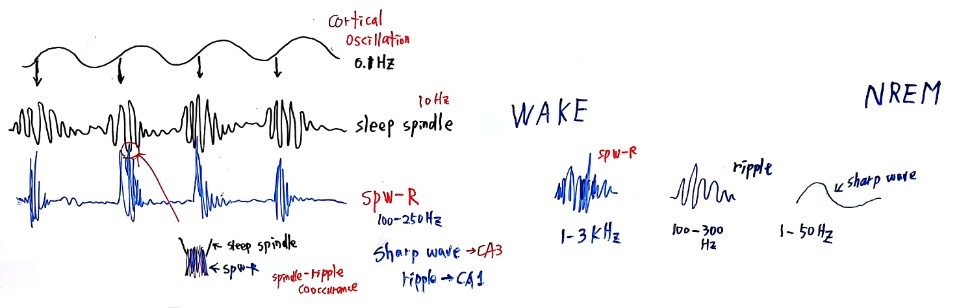 cortical
oscillation
0.1Hz
10Hz
sleep spindle
SPW-R
100-250Hz
sleep spindle
SPW-R
spindle-ripple
cooccurance
Sharp wave → CA3
ripple → CA1
WAKE
NREM
SPW-R
1-3KHz
ripple
100-300
Hz
sharp wave
1-50Hz